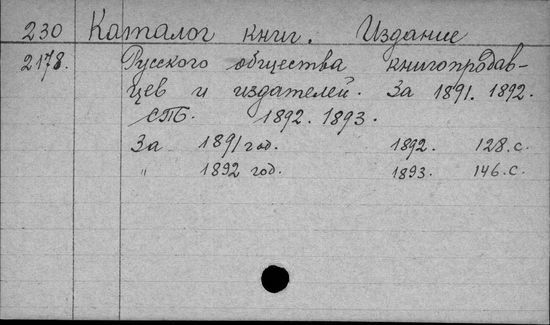 230 Каталог книг. Издание
2178. Русского общества книгопродав-
цев и издателей. За 1891. 1892.
СПб. 1892. 1893.
За 1891 год. 1892. 128.с.
" 1892 год. 1893. 146.с.